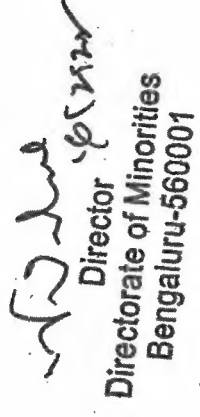 Director
Directorate of Minorities
Bengaluru-560001